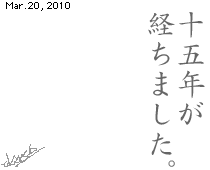 Mar.20, 2010
十五年が
経ちました。